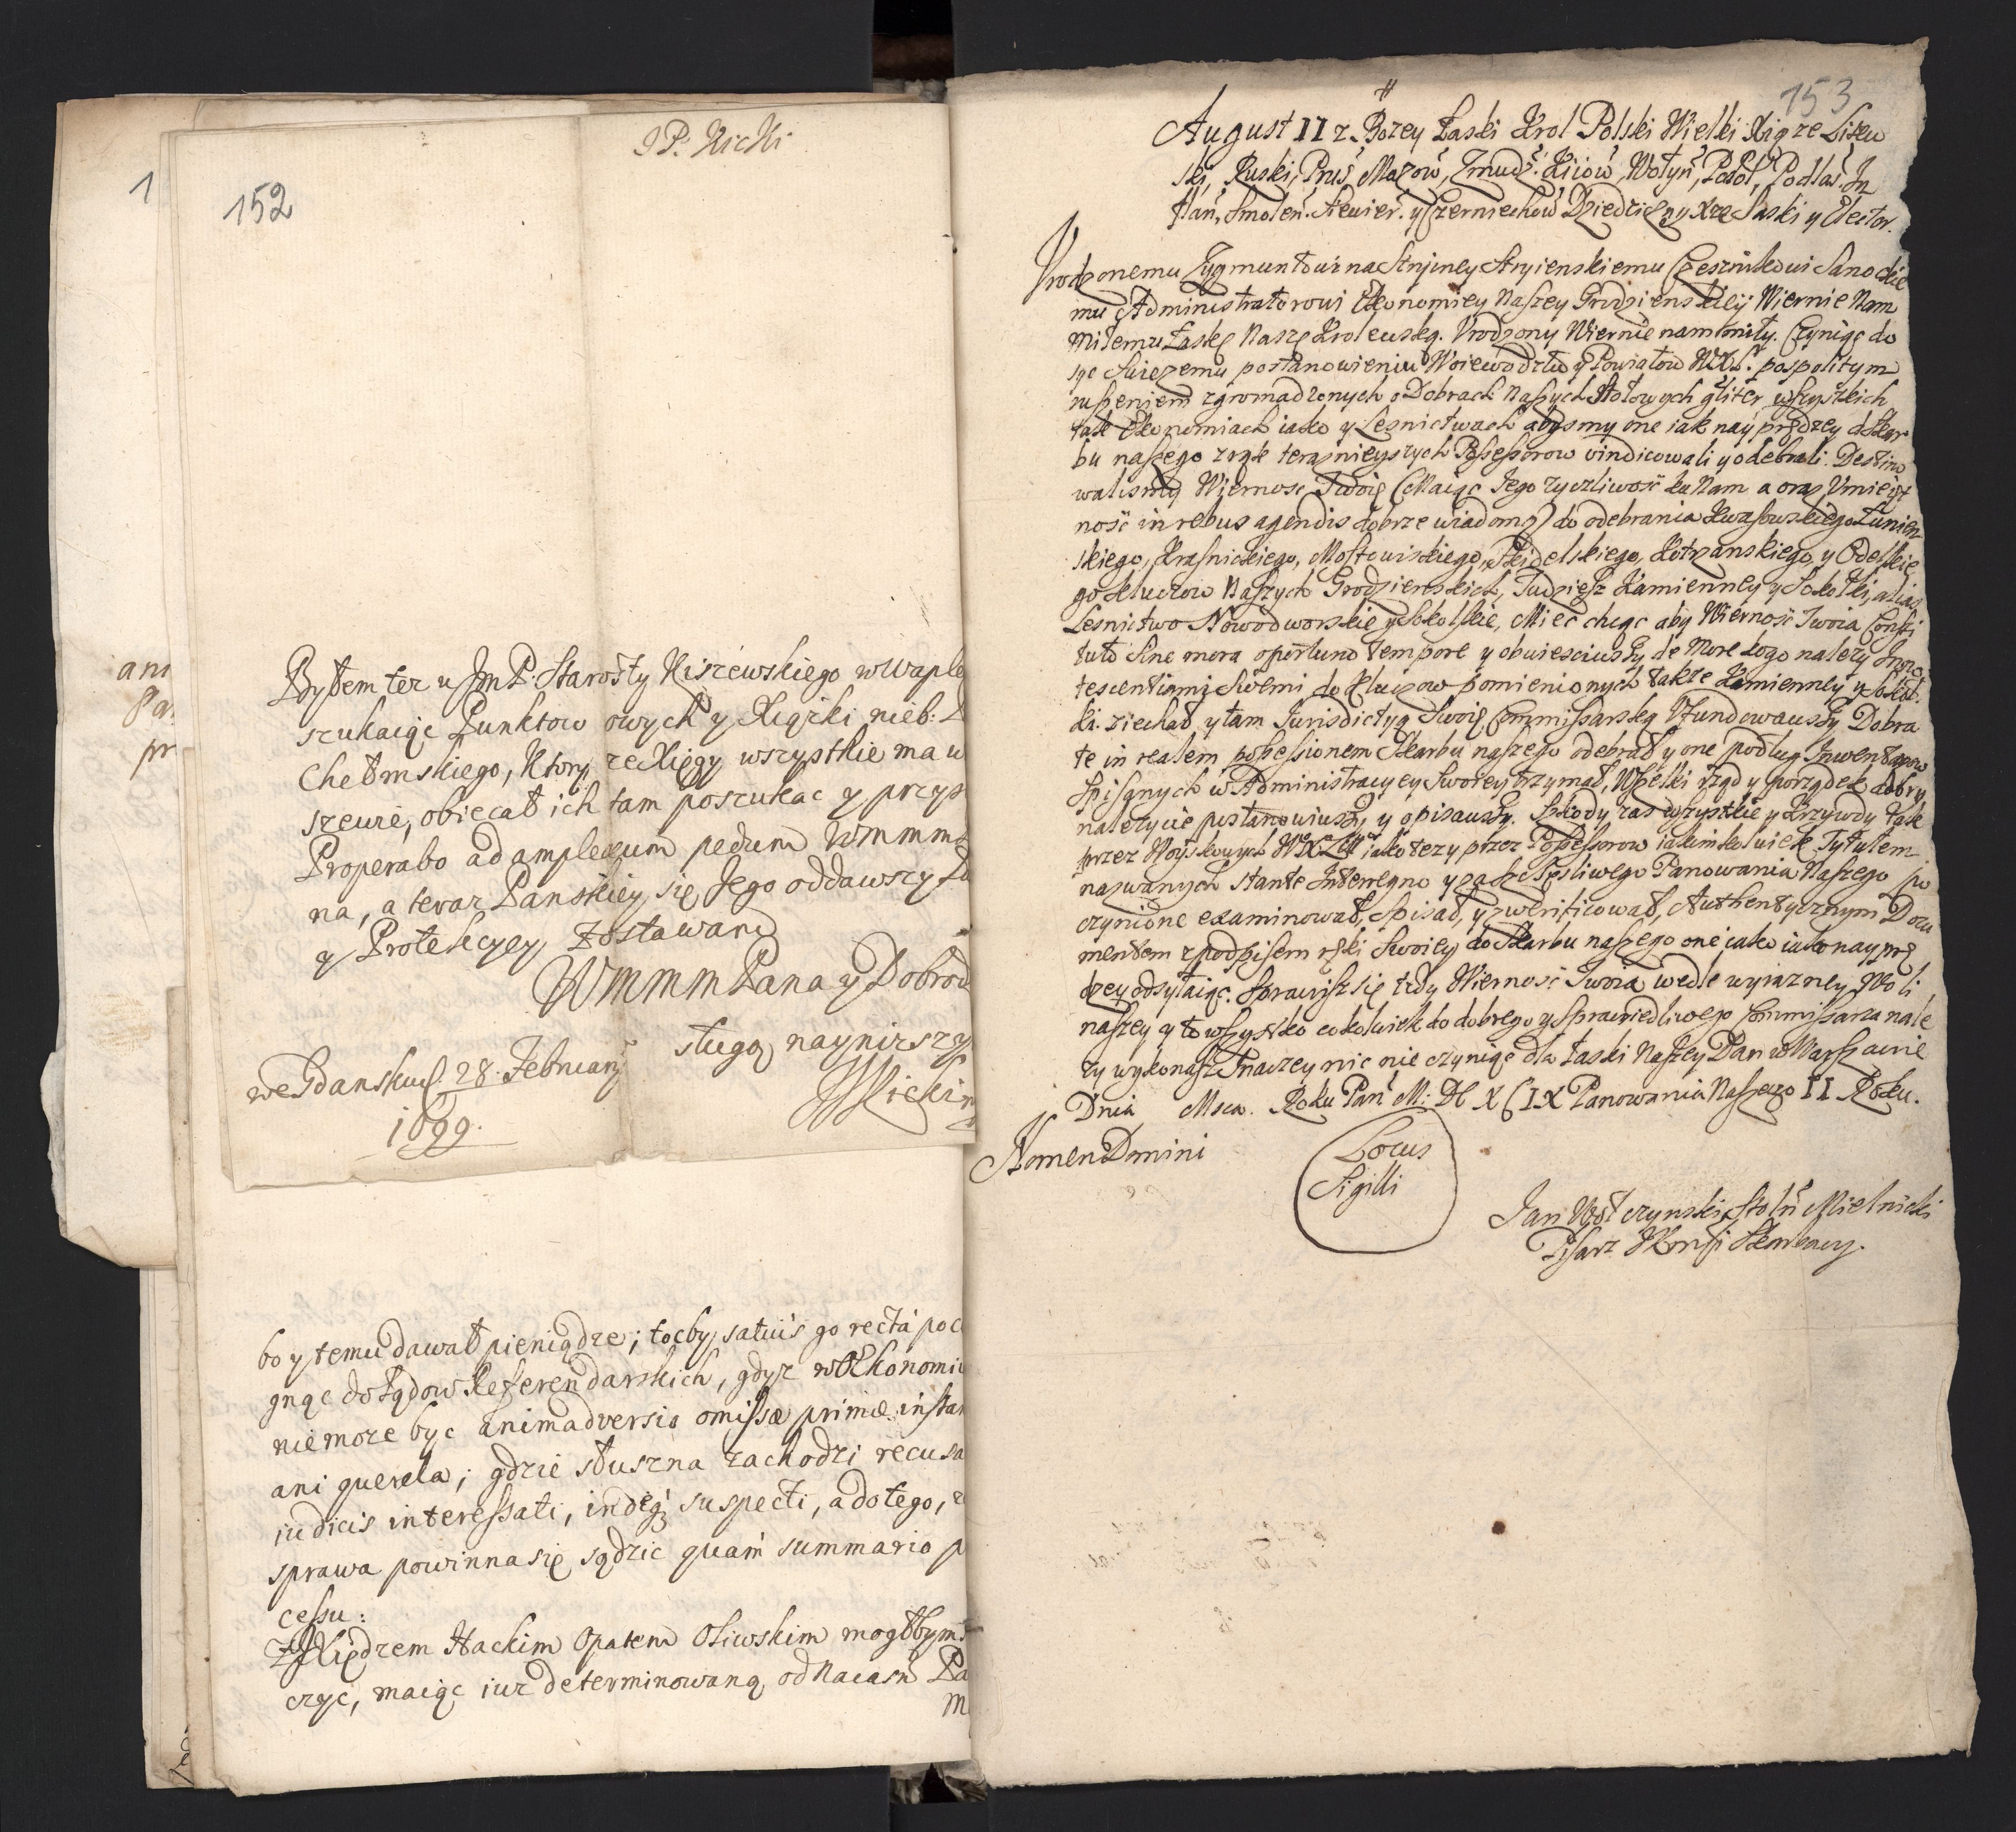 JP. Kicki
1
152
ani
Pa
pr
Byłem też u JmP. Starosty Kiszewskiego w Waple
szukaiąc Punktow owych y Xiąszki nieb:
Chełmskiego, Ktory ze Xięgy wszystkie ma w
szeuie, obiecał ich tam poszukac y przys
Properabo ad amplexum pedum Wmmm
na, a teraz Panskiey się Jego oddawszy Ła
y Protekcyey zostawam
WmmmPana y Dobrod
sługą naynizszy
we Gdansku d. 28. Februarij
1699.
Kicki
bo y temu dawał pieniądze; toćby satius go rectá poc
gnąc do Sądow Referendarskich, gdyz w Ekonomii
nie moze byc animadversio omissæ primæ instan
ani querela; gdzie słuszna zachodzi recusa
iudicis interessati, indeq; suspecti, a do tego,
sprawa powinna się sądzic quam summario p
cessu:
Z Xiędzem Hackim Opatem Oliwskim mogłbym
czyc, maiąc iuz determinowaną od Naiasń Pa
M
153
August II z Bozey Łaski Krol Polski Wielki Xiąze Litew
ski, Ruski, Prus̃ Mazow̃, Zmudz̃. Kiiow̃, Wołyn̄, Podol̃, Podlas̃. In
flan̄, Smoleń. Siewier̃. y Czerniechow̃ Dziedziczny Xze Saski y Elector.
Vrodzonemu Zygmuntowi na Stryiney Stryienskiemu Czesznikowi Sanockie
mu Administratorowi Ekonomiey Naszey Grodzienskiey Wiernie Nam
Miłemu Łaskę Naszę Krolewską. Vrodzony Wiernie nam miły. Czyniąc do
syc swiezemu postanowieniu Woiewodztw y Powiatow WXL. pospolitym
ruszeniem zgromadzonych o Dobrach Naszych Stołowych gliter wszystkich
tak Ekonomiach iako y Lesnictwach abysmy one iak nayprędzey do Skar
bu naszego z rąk teraznieyszych Possessorow vindicowali y odebrali. Destino
walismy Wiernosc Twoię (Maiąc Jego zyczliwość ku Nam a oraz Vmieięt
ność in rebus agendis dobrze wiadomą) do odebrania Kwasowskiego Łunien
skiego, Krasnickiego, Mostowskiego, Skidelskiego, Kotrzanskiego, y Odelskie
go kluczow Naszych Grodzienskich, Tudziesz Kamienney y Sokołki, alias
Lesnictwo Nowodworskie y Sokolskie, Miec chcąc aby Wierność Twoia Consti
tuto sine mora oportuno tempore y obwiesciwszy de More kogo nalezy Inno
tescentiami Swemi do Kluczow pomienionych takze Kamienney y Sokoł
ki ziechał, y tam Jurisdictyą Swoię Commissarską Vfundowawszy Dobra
te in realem possessionem Skarbu naszego odebrał y one podług Inwentarzow
spisanych w Administracyey Swoiey trzymał, Wszelki rząd y porządek dobry
nalezycie postanowiwszy y opisawszy. Szkody zas wszystkie y krzywdy tak
przez Woyskowych WXL iako tezy przez Possessorow iakimkolwiek Tytułem
nazwanych stante Interregno y za szczęsliwego Panowania Naszego po
czynione examinował, Spisał, y zweryficował, Authentycznym Docu
mentem z podpisem ręki Swoiey do Skarbu naszego one iako iako nayprę
dzey odsyłaiąc. Sprawisz się tedy Wierność Twoia wedle wyrazney Woli
naszey y to wszystko cokolwiek do dobrego y Sprawiedliwego Commissarza nale
zy wykonasz Inaczey nic nie czyniąc dla łaski Naszey Dan w Warszawie
Dnia Msca. Roku Pań M: DC X C IX Panowania Naszego II Roku.
Nomen Domini
Locus
Sigilli
Jan Wołczynski Stolń Mielnicki
Pisarz Skarbowy.